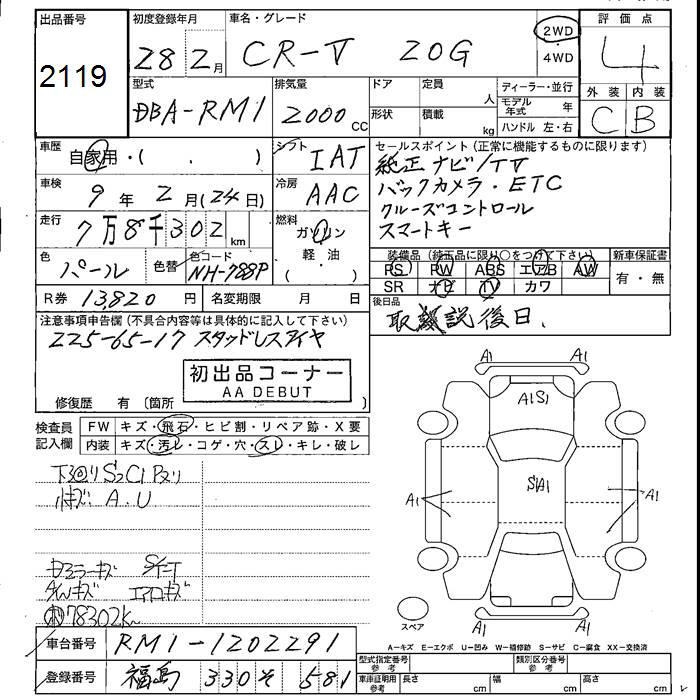 出品番号
2119
初度登録年月
28 2月
車名・グレード
CR-V 20G
2WD
・
4WD
評価点
4
外装 内装
C B
型式
DBA-RM1
排気量
2000 CC
ドア
形状
定員 人
積載 kg
ディーラー・並行
モデル年式 年
ハンドル 左・右
車歴
自家用・( )
シフト
IAT
セールスポイント(正常に機能するものに限ります)
純正ナビ/TV
バックカメラ・ETC
クルーズコントロール
スマートキー
車検
9年 2月(24日)
冷房
AAC
走行
7万8千302 km
燃料
ガソリン
軽・油
( )
色
パール
色替
色コード
NH-788P
装備品(純正品に限り○をつけて下さい)
PS PW ABS エアB AW
SR ナビ TV カワ
新車保証書
有・無
R券 13,820 円
名変期限 月 日
後日品
取、説後日、
注意事項申告欄(不具合内容等は具体的に記入して下さい)
225-65-17 スタッドレスタイヤ
初出品コーナー
AA DEBUT
修復歴 有〔箇所
検査員
記入欄
FW キズ・飛石・ヒビ割・リペア跡・X要
内装 キズ・汚レ・コゲ・穴・スレ・キレ・破レ
下回りS2C1Pヌリ
小キズ A.U
ミラーキズ
キズ エアロキズ
78302K
A1 A1
A1S1
A1 S1A1 A1
A1 A1
スペア
A-キズ E-エクボ U-凹み W-補修跡 S-サビ C-腐食 XX-交換済
車台番号
RM1-1202291
登録番号
福島 330 そ 581
型式指定番号
参考
類別区分番号
参考
車庫証明用
参考
長さ cm
幅 cm
高さ cm